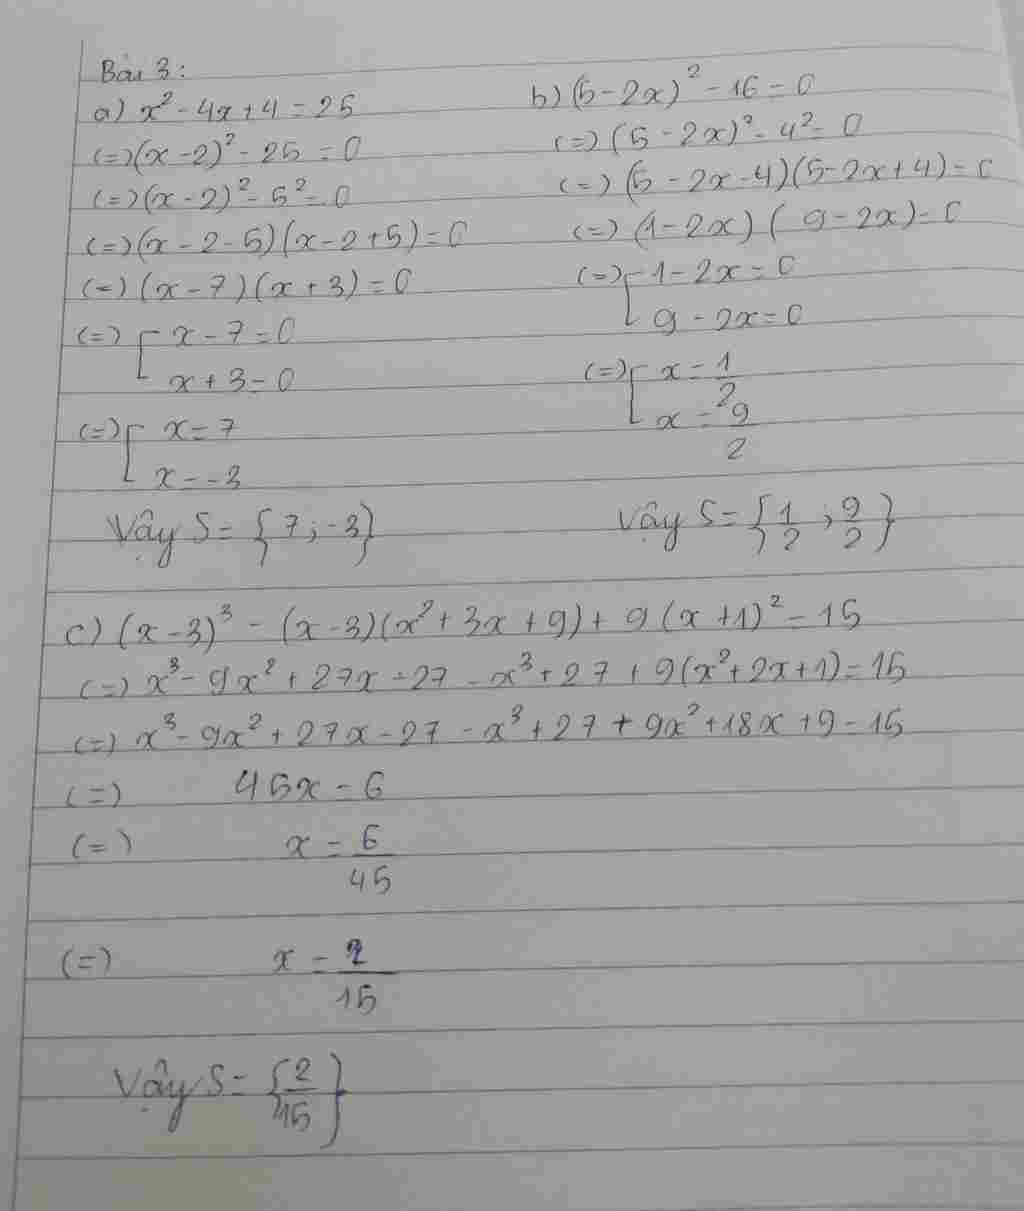 Bài 3:
a) x² - 4x + 4 = 25
(=) (x - 2)² - 25 = 0
(=) (x - 2)² - 5² = 0
(=) (x - 2 - 5)(x - 2 + 5) = 0
(=) (x - 7)(x + 3) = 0
(=) [ x - 7 = 0
x + 3 = 0
(=) [ x = 7
x = -3
Vậy S = {7; -3}
b) (5 - 2x)² - 16 = 0
(=) (5 - 2x)² - 4² = 0
(=) (5 - 2x - 4)(5 - 2x + 4) = 0
(=) (1 - 2x)(9 - 2x) = 0
(=) [ 1 - 2x = 0
9 - 2x = 0
(=) [ x = 1/2
x = 9/2
Vậy S = {1/2; 9/2}
c) (x - 3)³ - (x - 3)(x² + 3x + 9) + 9(x + 1)² = 15
(=) x³ - 9x² + 27x - 27 - x³ + 27 + 9(x² + 2x + 1) = 15
(=) x³ - 9x² + 27x - 27 - x³ + 27 + 9x² + 18x + 9 = 15
(=) 45x = 6
(=) x = 6/45
(=) x = 2/15
Vậy S = {2/15}